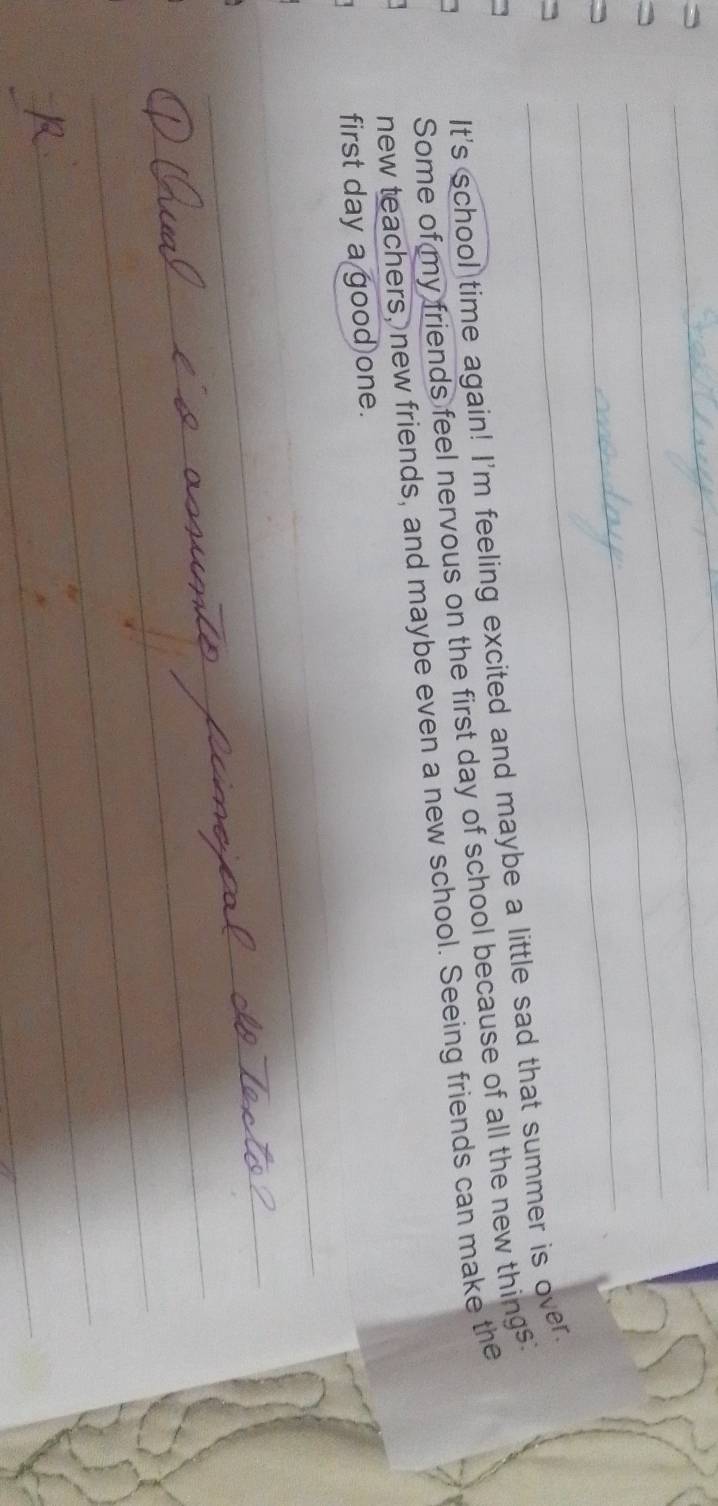 monday
It's school time again! I'm feeling excited and maybe a little sad that summer is over.
Some of my friends feel nervous on the first day of school because of all the new things:
new teachers, new friends, and maybe even a new school. Seeing friends can make the
first day a good one.
① Qual é o assunto principal do texto?
- R.